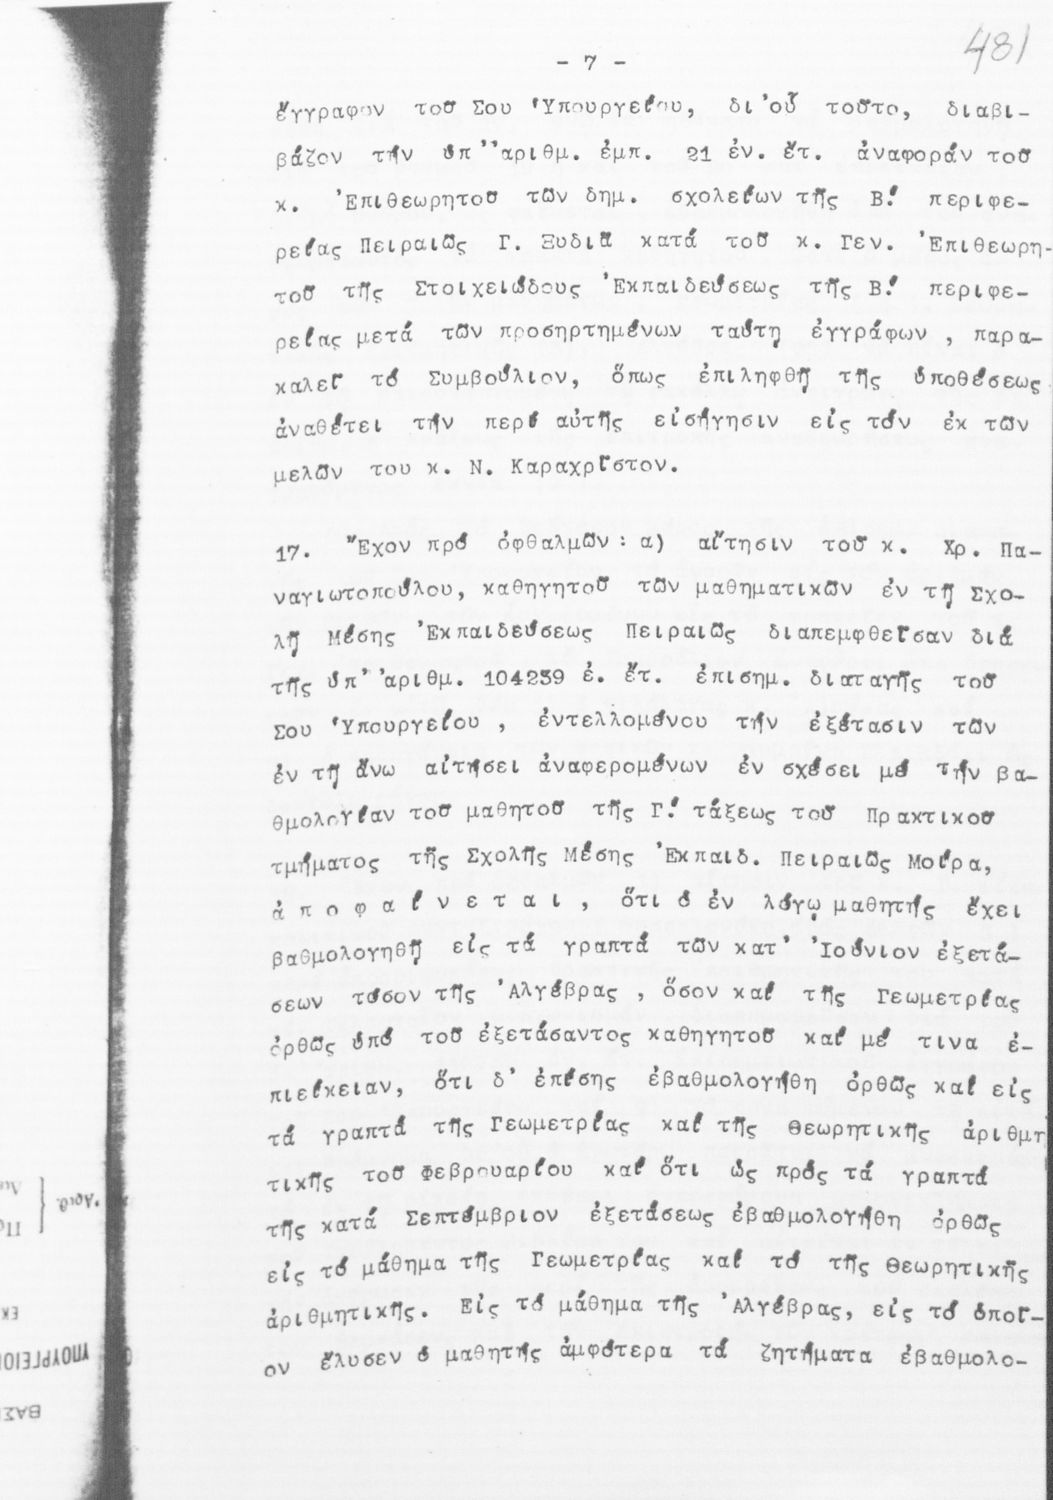 481
- 7 -
ἔγγραφον τοῦ Σου Ὑπουργείου, δι'οὗ τοῦτο, διαβι-
βάζον τήν ὑπ''ἀριθμ. ἐμπ. 21 ἐν. ἔτ. ἀναφοράν τοῦ
κ. Ἐπιθεωρητοῦ τῶν δημ. σχολείων τῆς Β! περιφε-
ρείας Πειραιῶς Γ. Ξυδιᾶ κατά τοῦ κ. Γεν. Ἐπιθεωρη-
τοῦ τῆς Στοιχειώδους Ἐκπαιδεύσεως τῆς Β! περιφε-
ρείας μετά τῶν προσηρτημένων ταύτῃ ἐγγράφων , παρα-
καλεῖ τό Συμβούλιον, ὅπως ἐπιληφθῇ τῆς ὑποθέσεως
ἀναθέτει τήν περί αὐτῆς εἰσήγησιν εἰς τόν ἐκ τῶν
μελῶν του κ. Ν. Καραχρῖστον.
17. Ἔχον πρό ὀφθαλμῶν: α) αἴτησιν τοῦ κ. Χρ. Πα-
ναγιωτοπούλου, καθηγητοῦ τῶν μαθηματικῶν ἐν τῇ Σχο-
λῇ Μέσης Ἐκπαιδεύσεως Πειραιῶς διαπεμφθεῖσαν διά
τῆς ὑπ' ἀριθμ. 104239 ἐ. ἔτ. ἐπισημ. διαταγῆς τοῦ
Σου Ὑπουργείου , ἐντελλομένου τήν ἐξέτασιν τῶν
ἐν τῇ ἄνω αἰτήσει ἀναφερομένων ἐν σχέσει μέ τήν βα-
θμολογίαν τοῦ μαθητοῦ τῆς Γ! τάξεως τοῦ Πρακτικοῦ
τμήματος τῆς Σχολῆς Μέσης Ἐκπαιδ. Πειραιῶς Μοίρα,
ἀ π ο φ α ί ν ε τ α ι , ὅτι ὁ ἐν λόγῳ μαθητής ἔχει
βαθμολογηθῆ εἰς τά γραπτά τῶν κατ' Ἰούνιον ἐξετά-
σεων τόσον τῆς Ἀλγέβρας , ὅσον καί τῆς Γεωμετρίας
ὀρθῶς ὑπό τοῦ ἐξετάσαντος καθηγητοῦ καί μέ τινα ἐ-
πιείκειαν, ὅτι δ' ἐπίσης ἐβαθμολογήθη ὀρθῶς καί εἰς
τά γραπτά τῆς Γεωμετρίας καί τῆς Θεωρητικῆς ἀριθμη
τικῆς τοῦ Φεβρουαρίου καί ὅτι ὡς πρός τά γραπτά
τῆς κατά Σεπτέμβριον ἐξετάσεως ἐβαθμολογήθη ὀρθῶς
εἰς τό μάθημα τῆς Γεωμετρίας καί τό τῆς Θεωρητικῆς
ἀριθμητικῆς. Εἰς τό μάθημα τῆς Ἀλγέβρας, εἰς τό ὁποῖ-
ον ἔλυσεν ὁ μαθητής ἀμφότερα τά ζητήματα ἐβαθμολο-